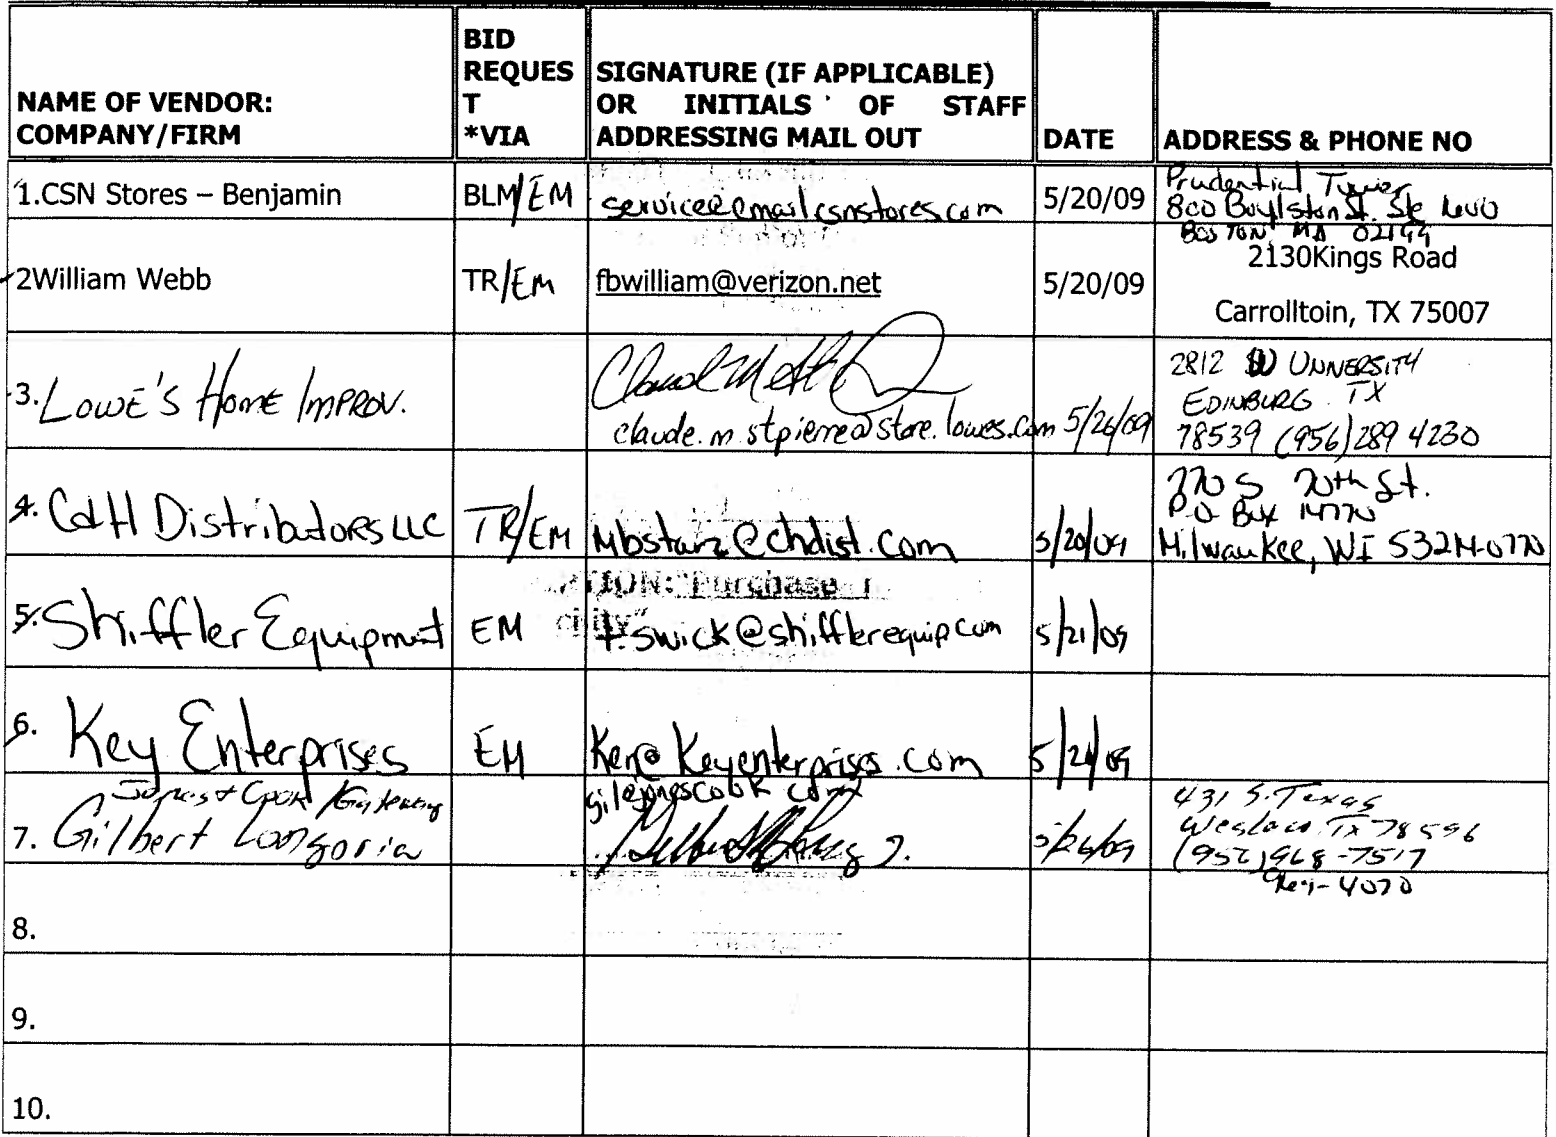 NAME OF VENDOR:
COMPANY/FIRM
BID
REQUES
T
*VIA
SIGNATURE (IF APPLICABLE)
OR INITIALS OF STAFF
ADDRESSING MAIL OUT
DATE
ADDRESS & PHONE NO
1.CSN Stores – Benjamin
BLM/EM
service@email.csnstores.com
5/20/09
Prudential Tower
800 Boylston St. Ste 1600
BOSTON, MA 02199
2William Webb
TR/EM
fbwilliam@verizon.net
5/20/09
2130Kings Road
Carrolltoin, TX 75007
3. LOWE'S HOME IMPROV.
claude.m.stpierre@store.lowes.com
5/26/09
2812 W UNIVERSITY
EDINBURG TX
78539 (956)289 4230
4. C&H Distributors LLC
TR/EM
Mbstarz@chdist.com
5/20/09
770 S 70th St.
P.O. Box 14770
Milwaukee, WI 53214-0770
5. Shiffler Equipment
EM
t.swick@shifflerequip.com
5/21/09
6. Key Enterprises
EM
Ken@Keyenterprises.com
5/21/09
7. Gilbert Longoria
5/26/09
431 S. Texas
Weslaco, TX 78596
(956)968-7517
4070
8.
9.
10.